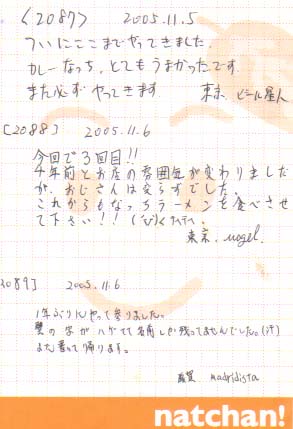 <2087> 2005.11.5
ついにここまでやってきました。
カレーなっち、とてもうまかったです。
また必ずやってきます 東京、ビシール星人
[2088] 2005.11.6
今回で3回目!!
4年前とお店の雰囲気が変わりました
が、おじさんは変らずでした。
これからもなっちラーメンを食べさせ
て下さい!!
東京、vogel.
2089] 2005.11.6
1年ぶりにやって参りました。
壁の字がハゲてて名前しか残ってませんでした。(汗)
また書って帰ります。
滋賀 madridista
natchan!